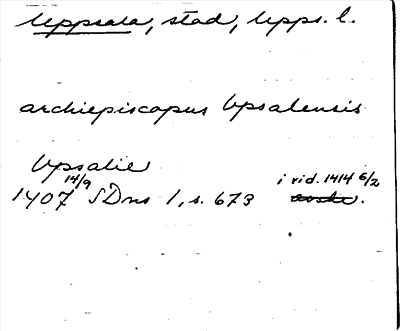 Uppsala, stad, Upps. l.
archiepiscopus Upsalensis
Upsalie
1407 14/9 SDns 1, s. 673 i vid. 1414 6/2 avskr.